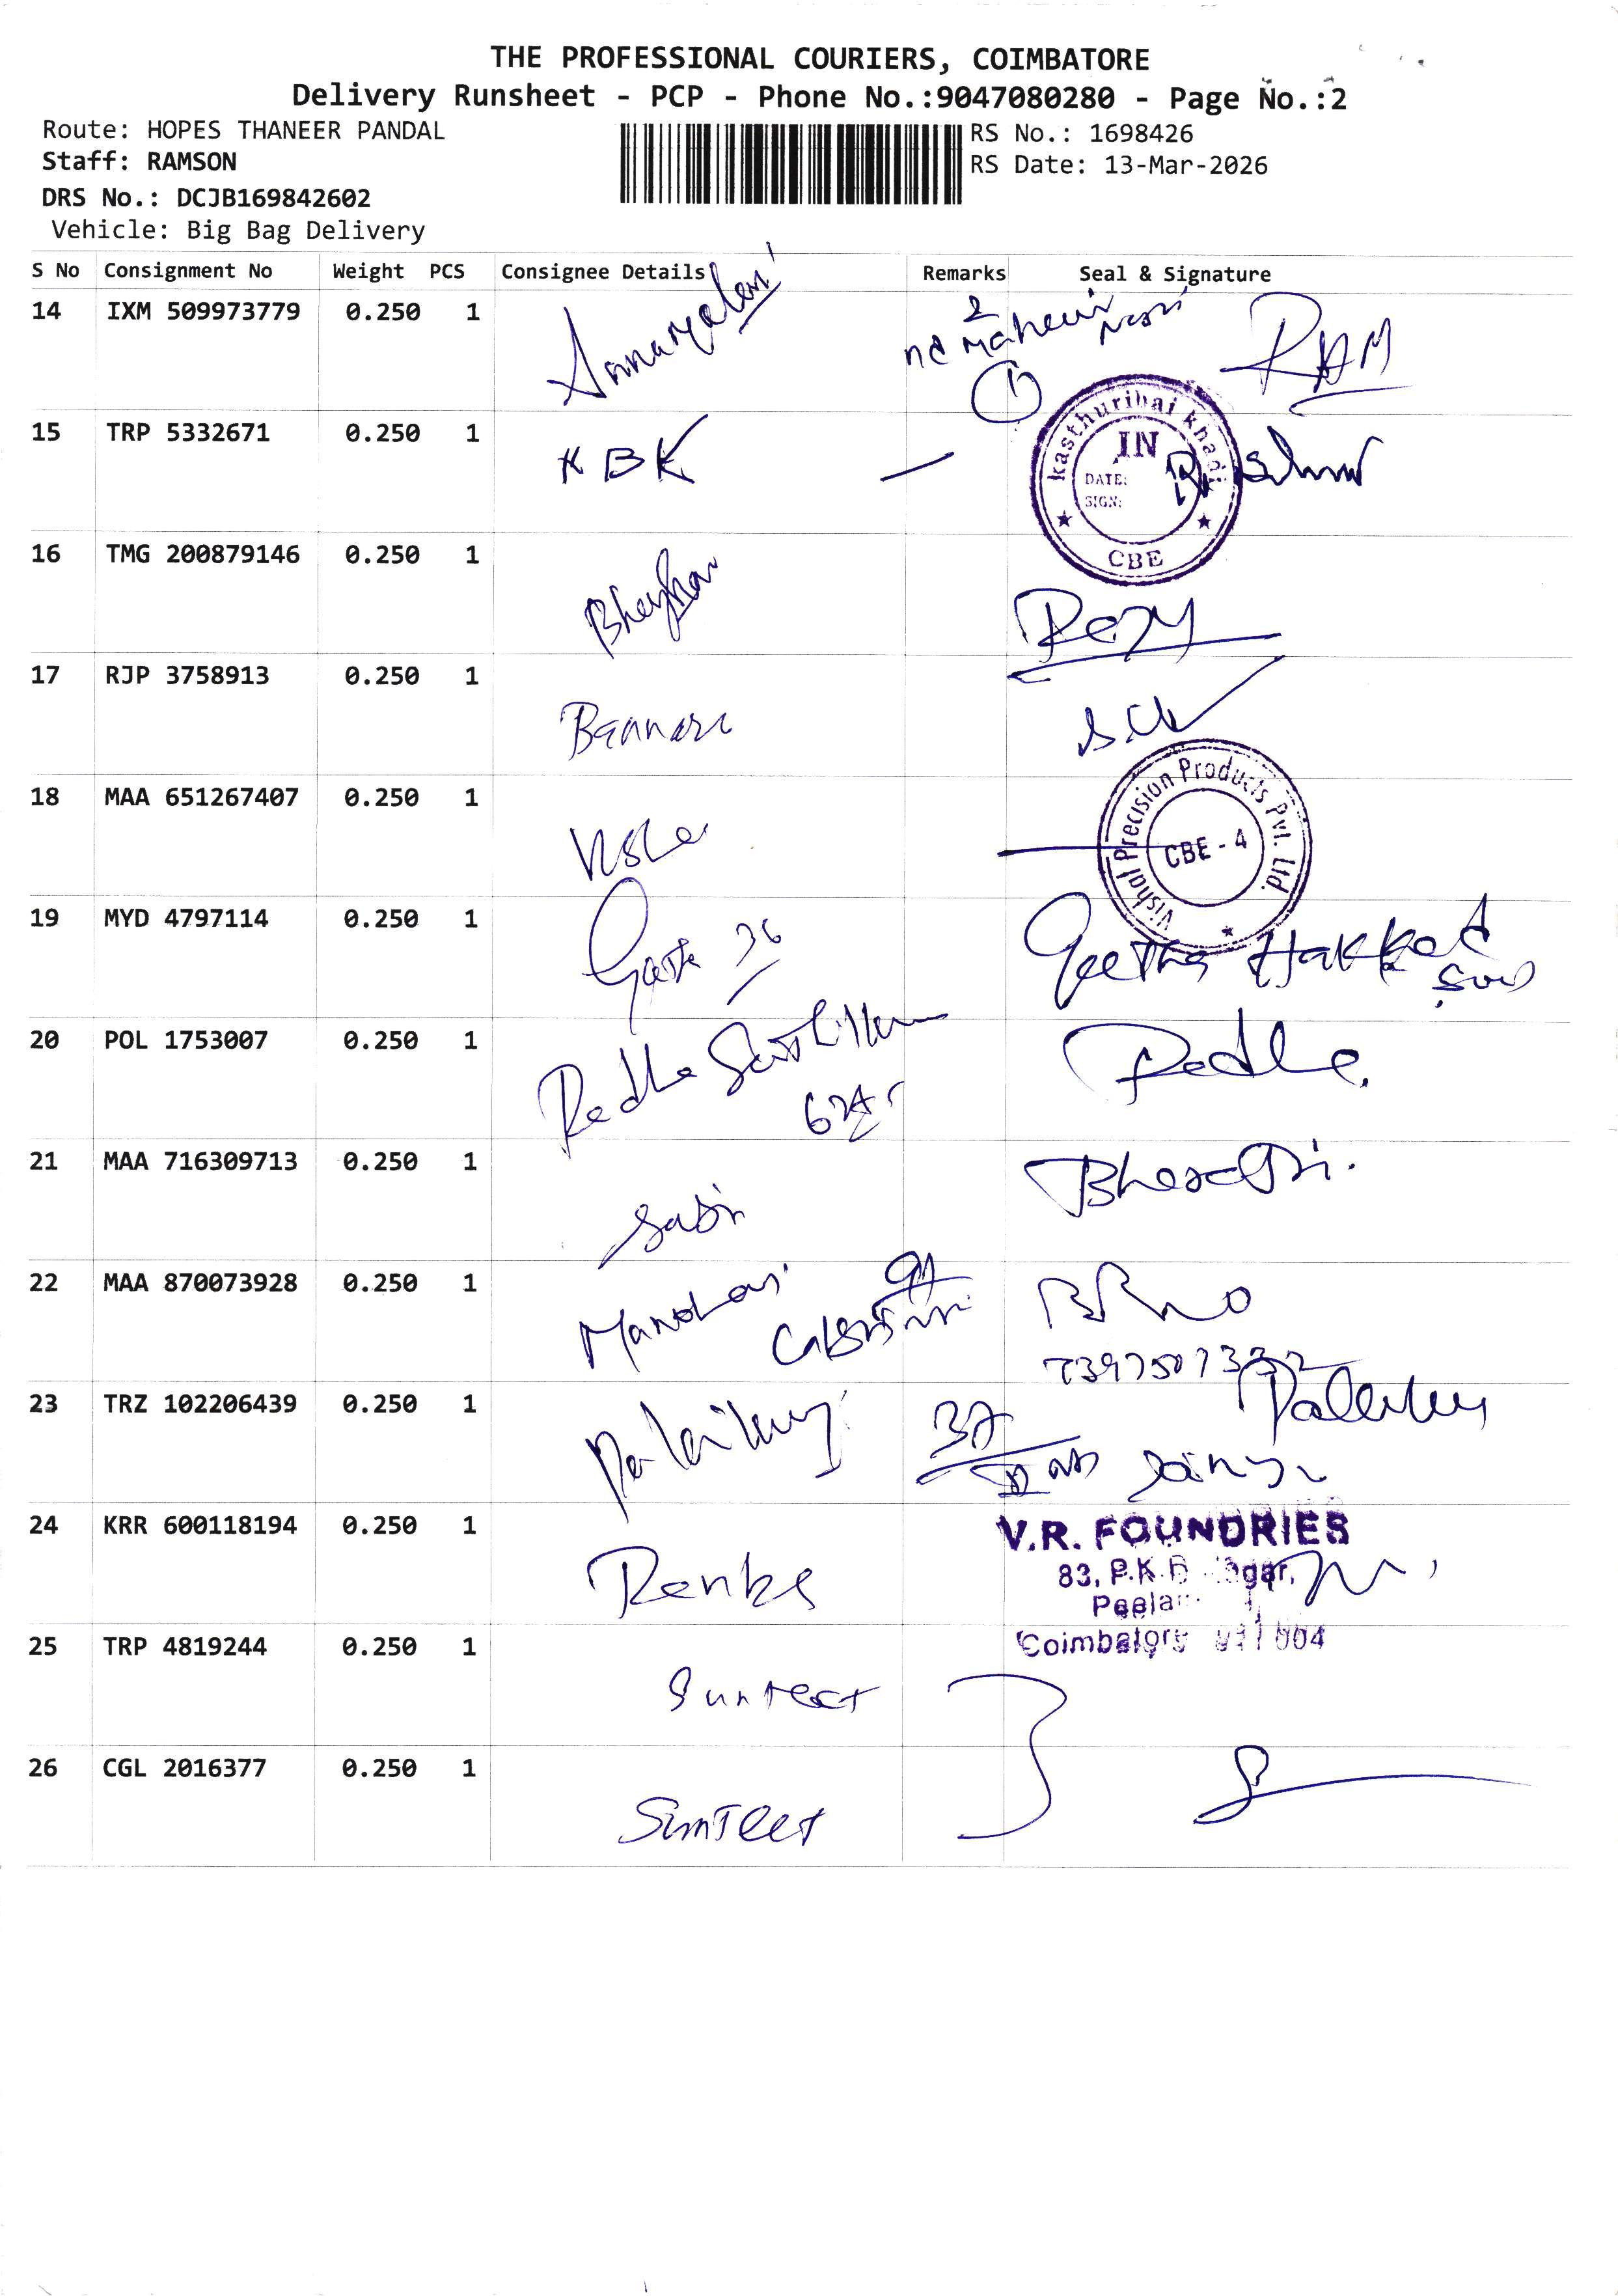 THE PROFESSIONAL COURIERS, COIMBATORE
Delivery Runsheet - PCP - Phone No.:9047080280 - Page No.:2
Route: HOPES THANEER PANDAL
Staff: RAMSON
DRS No.: DCJB169842602
Vehicle: Big Bag Delivery
RS No.: 1698426
RS Date: 13-Mar-2026
S No Consignment No Weight PCS Consignee Details Remarks Seal & Signature
14 IXM 509973779 0.250 1
2
1
RAM
15 TRP 5332671 0.250 1 KBK
kasthuribai khadi
IN
DATE:
SIGN:
CBE
16 TMG 200879146 0.250 1
17 RJP 3758913 0.250 1 Bannari
18 MAA 651267407 0.250 1
Vishal Precision Products Pvt. Ltd.
CBE - 4
19 MYD 4797114 0.250 1 Geetha 36 Geetha
20 POL 1753007 0.250 1 Radha Radha
21 MAA 716309713 0.250 1 Sabari Bharathi.
22 MAA 870073928 0.250 1 Manohari
23 TRZ 102206439 0.250 1
37
24 KRR 600118194 0.250 1 Renka
V.R. FOUNDRIES
83, P.K.D Nagar,
Coimbatore 641 004
25 TRP 4819244 0.250 1 Suntect
26 CGL 2016377 0.250 1 Suntect